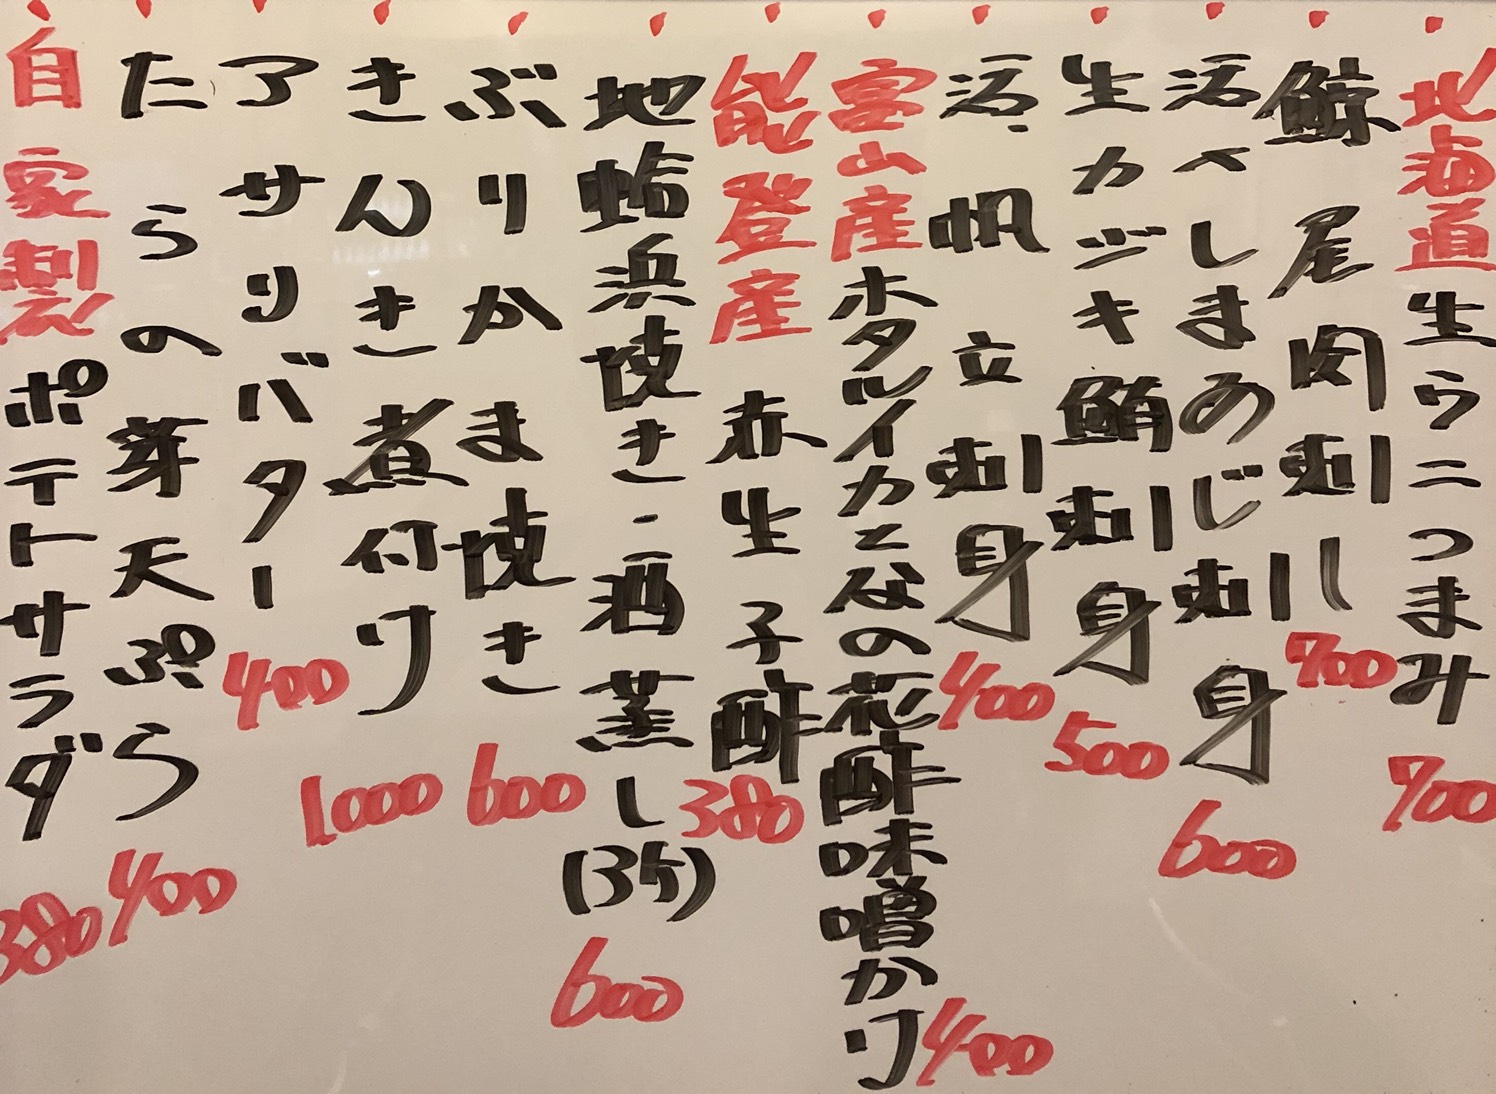 北海道生ウニつまみ 700
鯨尾肉刺し 700
活〆しまあじ刺身 600
生カジキ鮪刺身 500
活帆立刺身 400
富山産ホタルイカとなの花酢味噌かけ 400
能登産赤生子酢 380
地蛤浜焼き・酒蒸し(3ケ) 600
ぶりかま焼き 600
きんき煮付け 1000
アサリバター 400
たらの芽天ぷら 400
自家製ポテトサラダ 380